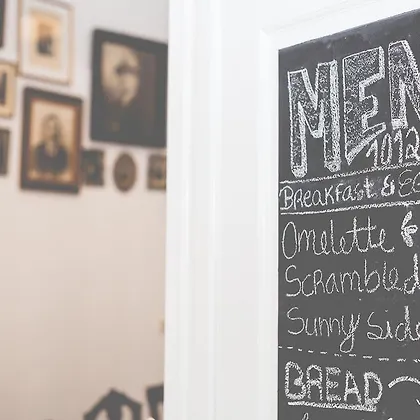 MEN
Breakfast & E
Omelette
Scrambled
Sunny Side
BREAD